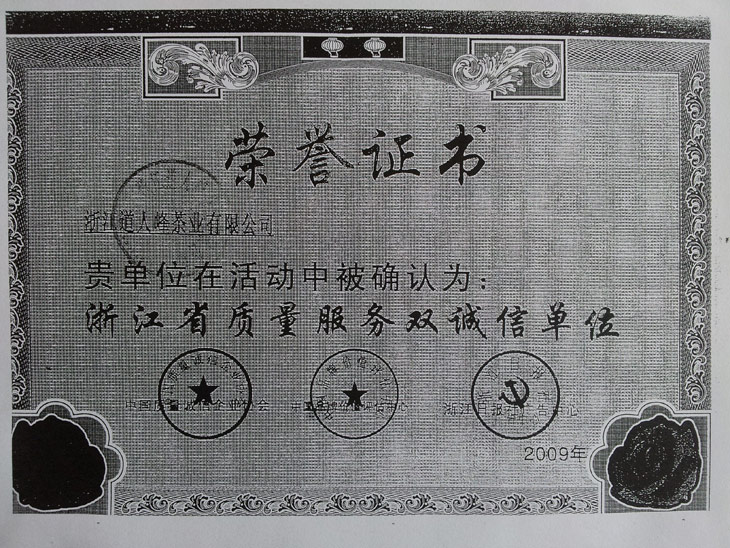 荣誉证书
浙江道人峰茶业有限公司
贵单位在活动中被确认为：
浙江省质量服务双诚信单位
中国质量诚信企业协会 浙江日报社广告中心
2009年